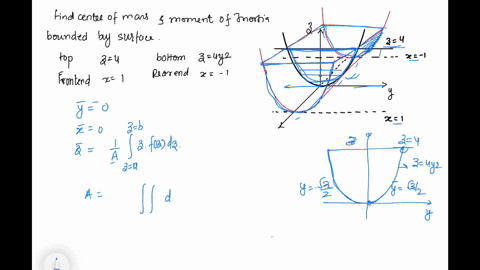 find center of mass & moment of Inertia
bounded by surface.
top z=4 bottom z=4y2
Frontend x=1 Rearend x=-1
ȳ = 0
x̄ = 0
z̄ = 1/A ∫ z=a z=b z f(z) dz
A = ∫∫ d
z
z=4
x=-1
y
x=1
z=4
z=4y2
y